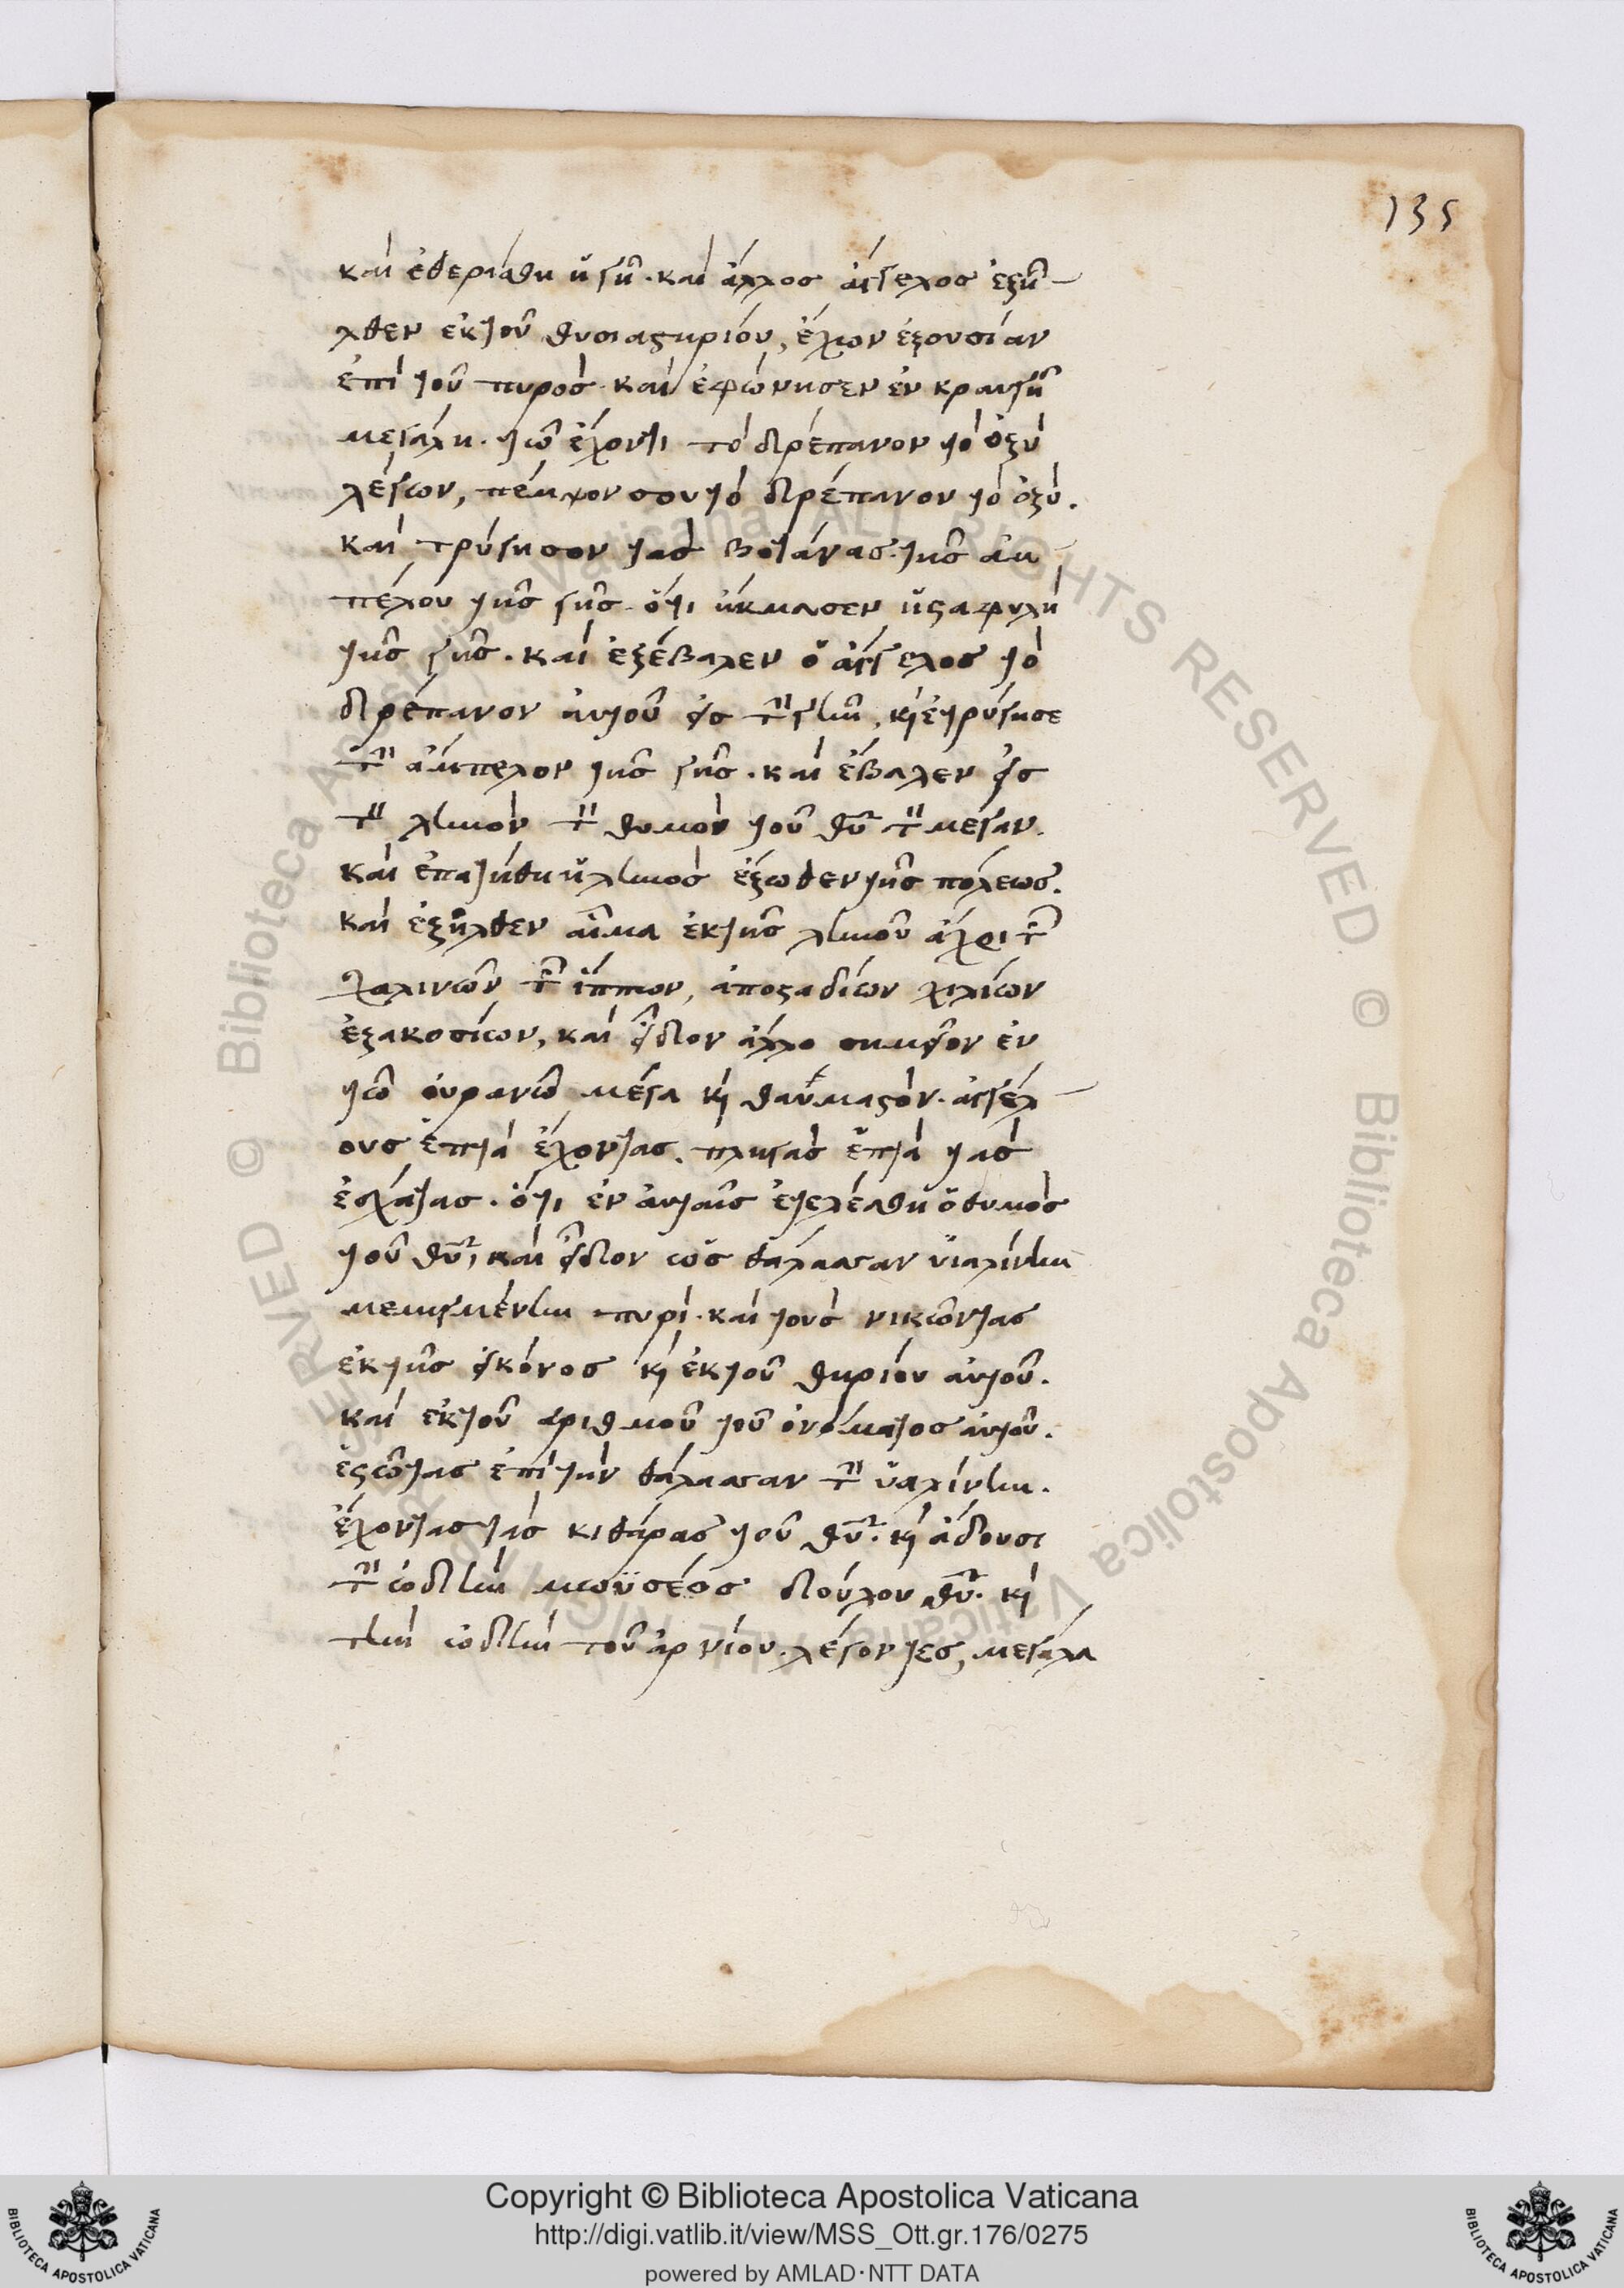 135
και εθερίσθη ἡ γῆ. και ἄλλος ἄγγελος ἐξῆ
λθεν ἐκ τοῦ θυσιαστηρίου, ἔχων ἐξουσίαν
ἐπὶ τοῦ πυρὸς. καὶ ἐφώνησεν ἐν κραυγῆ
μεγάλη. τῶ ἔχοντι τὸ δρέπανον τὸ ὀξὺ
λέγων, πέμψον σου τὸ δρέπανον τὸ ὀξὺ.
καὶ τρύγησον τὰς βοτάνας τῆς ἀμ
πέλου τῆς γῆς. ὅτι ἤκμασεν ἡ σταφυλὴ
τῆς γῆς. καὶ ἐξέβαλεν ὁ ἄγγελος τὸ
δρέπανον αὐτοῦ εἰς τὴν γῆν, κὶ ἐτρύγησε
τὴν ἄμπελον τῆς γῆς. καὶ ἔβαλεν εἰς
τὴν ληνὸν τὸν θυμὸν τοῦ θῦ τὸν μέγαν.
καὶ ἐπατήθη ἡ ληνὸς ἔξωθεν τῆς πόλεως.
καὶ ἐξῆλθεν αἷμα ἐκ τῆς ληνοῦ ἄχρι τῶν
χαλινῶν τῶν ἵππων, ἀπὸ σταδίων χιλίων
ἑξακοσίων, καὶ εἶδον ἄλλο σημεῖον ἐν
τῶ οὐρανῶ μέγα κὶ θαυμαστὸν. ἀγγέλ
ους ἑπτὰ ἔχοντας. πληγὰς ἑπτὰ τὰς
ἐσχάτας. ὅτι ἐν αὐταῖς ἐτελέσθη ὁ θυμὸς
τοῦ θῦ, καὶ εἶδον ὡς θάλασσαν ὑϊαλίνην
μεμιγμένην πυρὶ. καὶ τοὺς νικῶντας
ἐκ τῆς εἰκόνος κὶ ἐκ τοῦ θηρίου αὐτοῦ.
καὶ ἐκ τοῦ ἀριθμοῦ τοῦ ὀνόματος αὐτοῦ.
ἑστῶτας ἐπὶ τὴν θάλασσαν τὴν ὑαλίνην.
ἔχοντας τὰς κιθάρας τοῦ θῦ. κὶ ἄδουσι
τὴν ὠδὴν μωϋσέος δούλου θῦ. κὶ
τὴν ὠδὴν τοῦ ἀρνίου. λέγοντες, μεγάλα
Copyright © Biblioteca Apostolica Vaticana
http://digi.vatlib.it/view/MSS_Ott.gr.176/0275
powered by AMLAD·NTT DATA